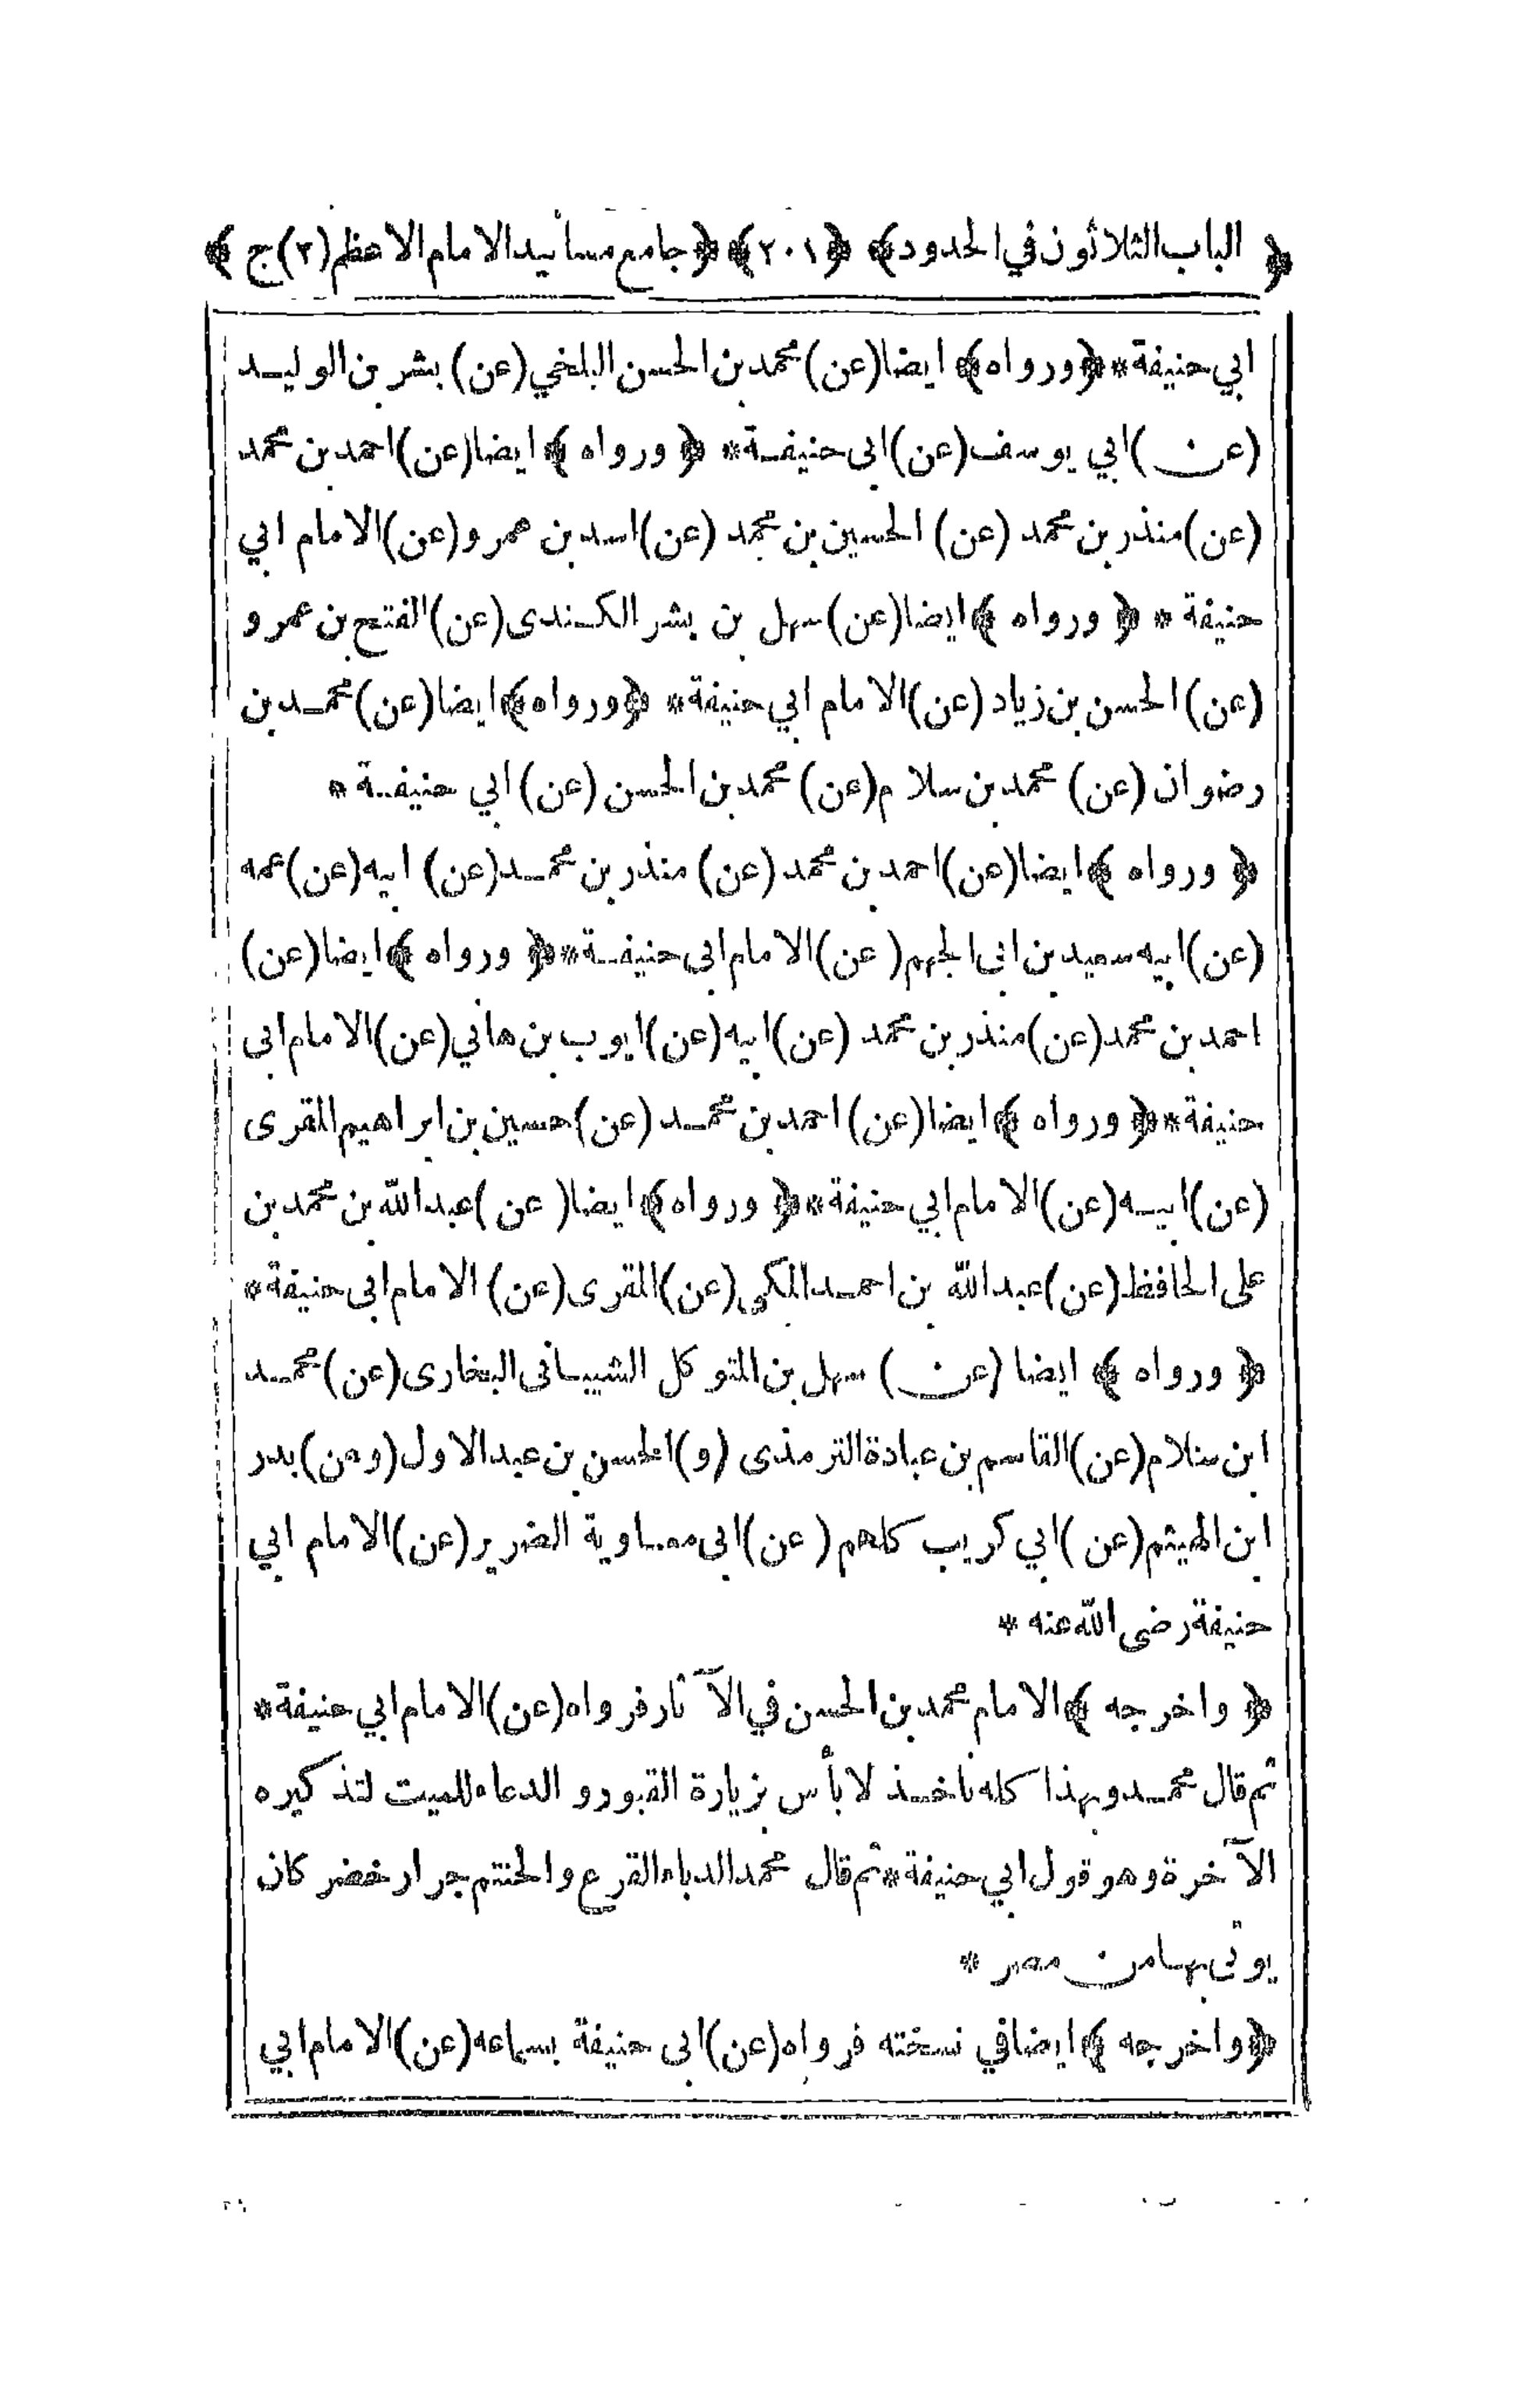 ﴿ الباب الثلاثون في الحدود ﴾ ﴿ ٢٠١ ﴾ ﴿ جامع مسانيد الامام الاعظم (٢) ج ﴾
ابي حنيفة * ﴿ ورواه ﴾ ايضا (عن) محمد بن الحسن البلخي (عن) بشر بن الوليد
(عن) ابي يوسف (عن) ابى حنيفة * ﴿ ورواه ﴾ ايضا (عن) احمد بن محمد
(عن) منذر بن محمد (عن) الحسين بن محمد (عن) اسد بن عمرو (عن) الامام ابي
حنيفة * ﴿ ورواه ﴾ ايضا (عن) سهل بن بشر الكندى (عن) الفتح بن عمرو
(عن) الحسن بن زياد (عن) الامام ابي حنيفة * ﴿ ورواه ﴾ ايضا (عن) محمد بن
رضوان (عن) محمد بن سلام (عن) محمد بن الحسن (عن) ابي حنيفة *
﴿ ورواه ﴾ ايضا (عن) احمد بن محمد (عن) منذر بن محمد (عن) ابيه (عن) عمه
(عن) ابيه سعيد بن ابى الجهم (عن) الامام ابى حنيفة * ﴿ ورواه ﴾ ايضا (عن)
احمد بن محمد (عن) منذر بن محمد (عن) ابيه (عن) ايوب بن هاني (عن) الامام ابى
حنيفة * ﴿ ورواه ﴾ ايضا (عن) احمد بن محمد (عن) حسين بن ابراهيم المقرى
(عن) ابيه (عن) الامام ابي حنيفة * ﴿ ورواه ﴾ ايضا (عن) عبد الله بن محمد بن
على الحافظ (عن) عبد الله بن احمد المكي (عن) المقرى (عن) الامام ابى حنيفة *
﴿ ورواه ﴾ ايضا (عن) سهل بن المتوكل الشيبانى البخارى (عن) محمد
ابن سلام (عن) القاسم بن عبادة الترمذى (و) الحسن بن عبد الاول (وعن) بدر
ابن الهيثم (عن) ابي كريب كلهم (عن) ابى معاوية الضرير (عن) الامام ابي
حنيفة رضى الله عنه *
﴿ واخرجه ﴾ الامام محمد بن الحسن في الآثار فرواه (عن) الامام ابي حنيفة *
ثم قال محمد وبهذا كله ناخذ لا بأس بزيارة القبور والدعاء للميت لتذكيره
الآخرة وهو قول ابي حنيفة * ثم قال محمد الدباء القرع والحنتم جرار خضر كان
يوتى بها من مصر *
﴿ واخرجه ﴾ ايضا في نسخته فرواه (عن) ابى حنيفة بسماعه (عن) الامام ابي